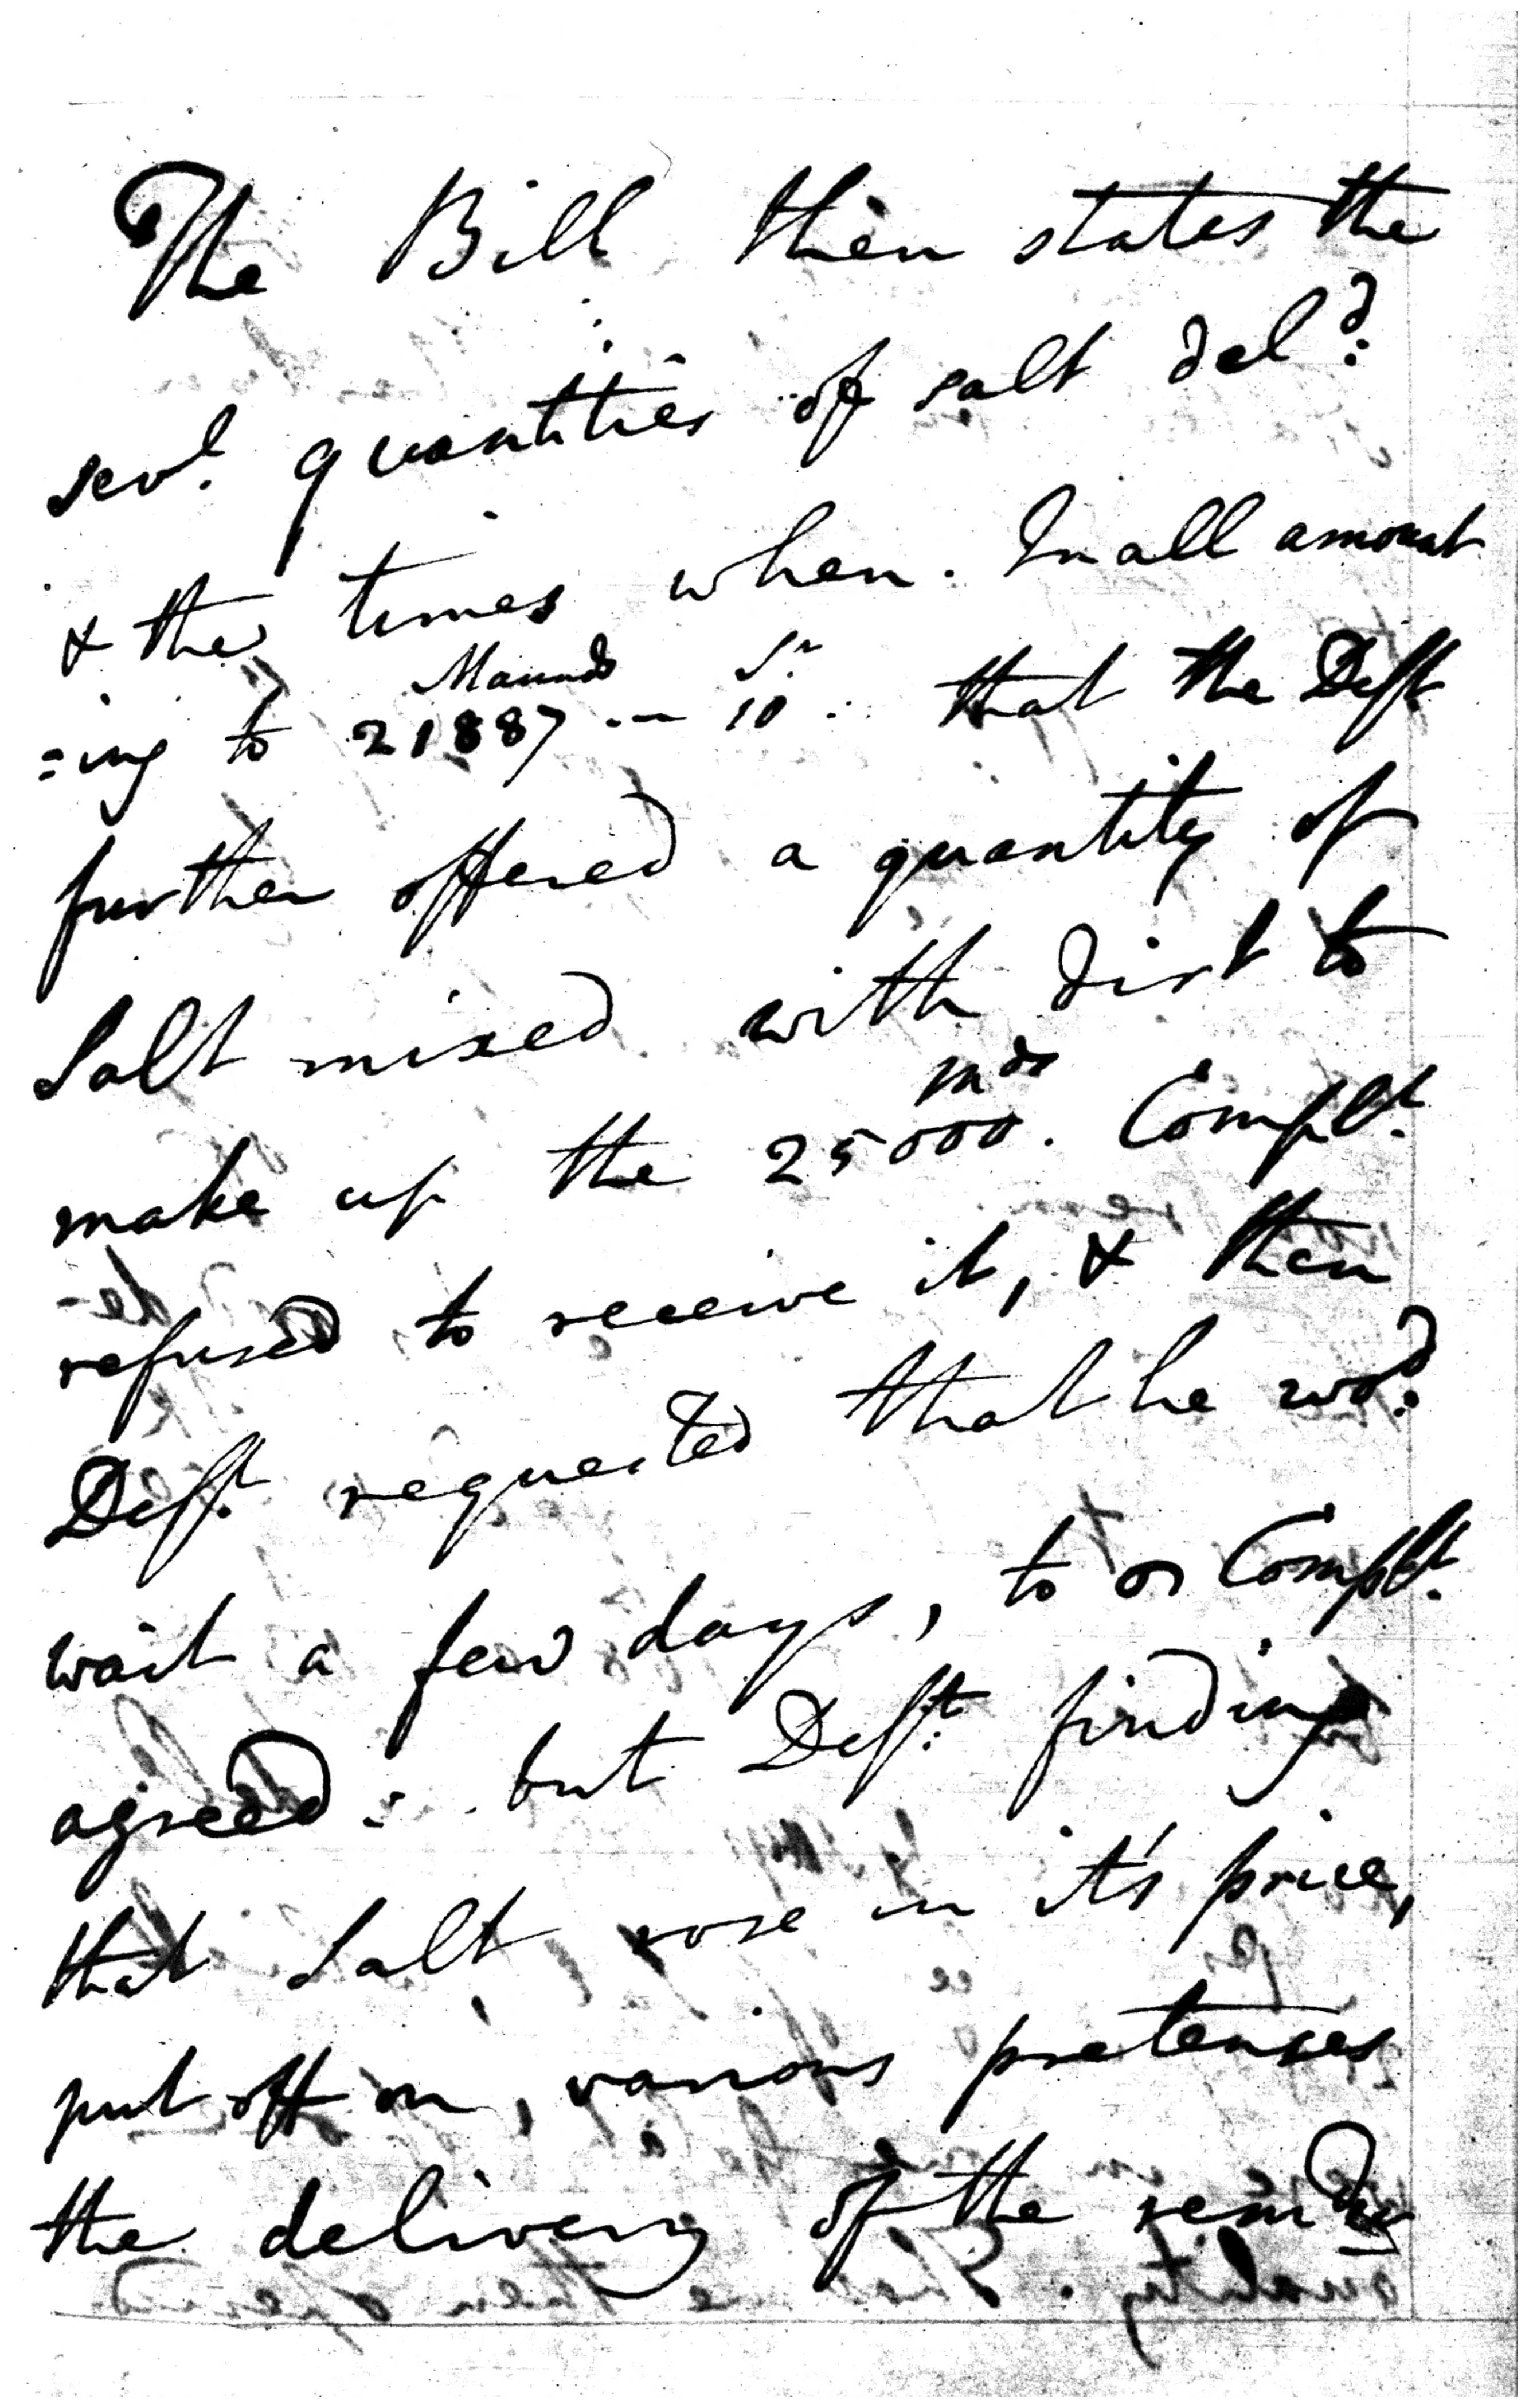 The Bill then states the
sevl. quantities of salt deld:
& the times when. In all amount
Maunds Sr.
=ing to 21887 -- 10. that the Deft
further offered a quantity of
Salt mixed with dirt to
mds
make up the 25000. Complt.
refused to receive it, & then
Deft. requested that he wod:
wait a few days, to Complt.
agreed: but Deft: finding
that Salt rose in it's price,
put off on, various pretenses
the delivery of the